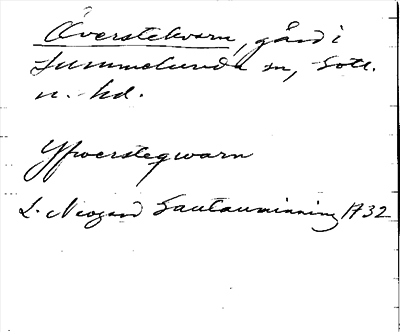 Överstekvarn, gård i
Lummelunda sn, Gotl.
n. hd.
Yfwersteqwarn
L. Neogard Gautauminning 1732